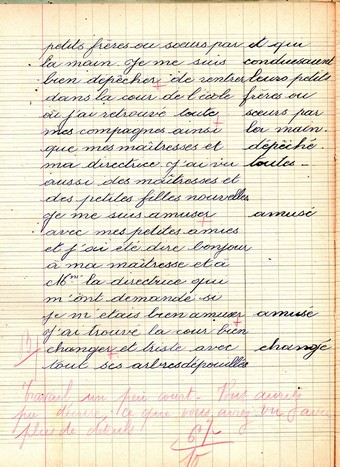 petits frères ou sœurs par et qui
la main. Je me suis conduisaient
bien dépêcher de rentrer leurs petits
dans la cour de l'école frères ou
où j'ai retrouvé toute sœurs par
mes compagnes ainsi la main.
que mes maîtresses et dépêché.
ma directrice j'ai vu toutes
aussi des maîtresses et
des petites filles nouvelles
je me suis amuser amusé
avec mes petites amies
et j'ai été dire bonjour
à ma maîtresse et à
Mme la directrice qui
m'ont demandé si
je m'étais bien amuser amusé
J'ai trouvé la cour bien
changer et triste avec changé
tout ses arbres dépouillés
Travail un peu court. Vous auriez
pu décrire ce que vous avez vu avec
plus de détails
6 1/2
10